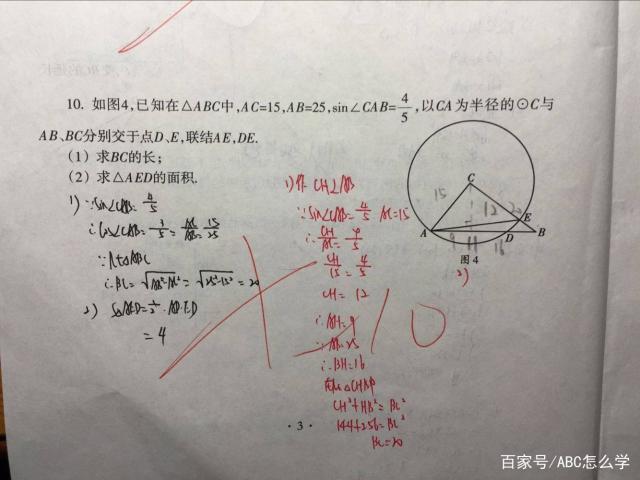 10. 如图4,已知在△ABC中,AC=15,AB=25,sin∠CAB=4/5,以CA为半径的⊙C与
AB、BC分别交于点D、E,联结AE,DE.
(1) 求BC的长;
(2) 求△AED的面积.
1) ∵sin∠CAB=4/5
∴cos∠CAB=3/5=AC/AB=15/25
∵Rt△ABC
∴BC=√AB²-AC²=√25²-15²=20
2) S△AED=1/2·AD·ED
=4
1) 作CH⊥AB
∵sin∠CAB=4/5 AC=15
∴CH/AC=4/5
CH/15=4/5
CH=12
∴AH=9
∵AB=25
∴BH=16
CH²+HB²=BC²
144+256=BC²
BC=20
0
C
15
12
20
E
A
9
H
D
16
B
图4
2)
·3·
百家号/ABC怎么学